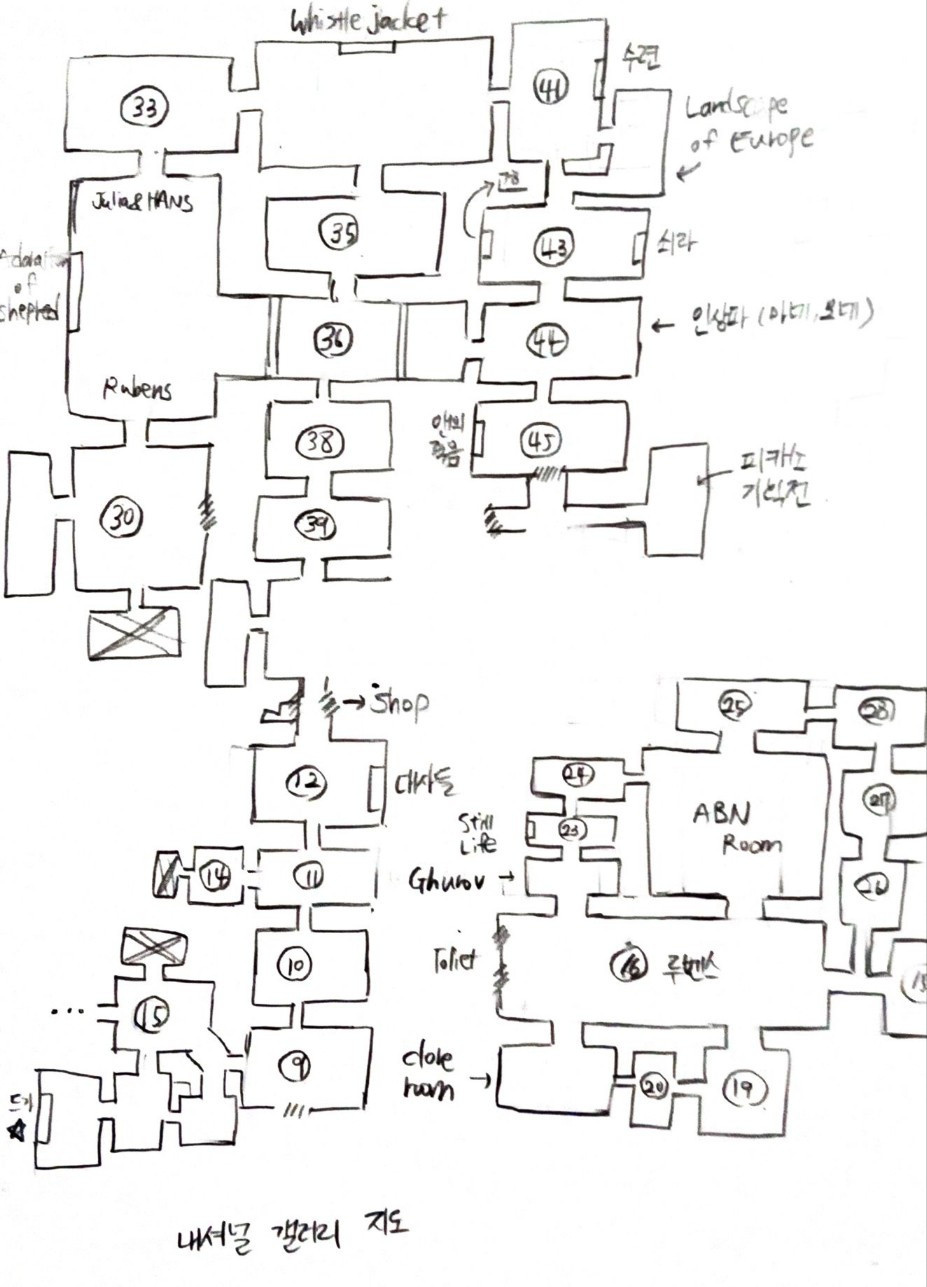 Whistle jacket
33
41
수련
Landscope
of Europe
Julia&HANS
35
고흐
43
쇠라
Adoration
of
shepred
36
44
인상파 (마네, 모네)
Rubens
38
45
피카소
기획전
30
39
→ Shop
25
28
12
대사들
24
ABN
Room
27
Still
Life
23
14
11
Ghurov →
26
Toliet
16 루벤스
10
15
15
9
cloke
room →
20
19
내셔널 갤러리 지도